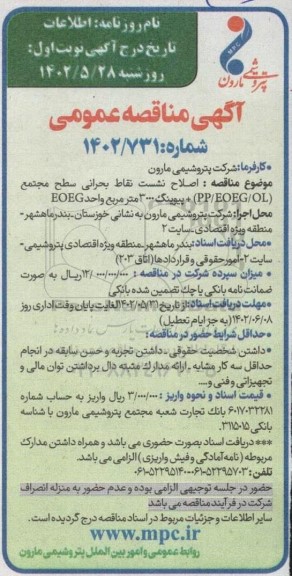 نام روزنامه: اطلاعات
تاریخ درج آگهی نوبت اول:
روز شنبه ۱۴۰۲/۵/۲۸
MPC
پتروشیمی مارون
آگهی مناقصه عمومی
شماره: ۱۴۰۲/۷۳۱
●کارفرما: شرکت پتروشیمی مارون
موضوع مناقصه : اصلاح نشست نقاط بحرانی سطح مجتمع
(PP/EOEG/OL) + پیوینگ ۳۰۰۰ متر مربع واحد EOEG
محل اجرا: شرکت پتروشیمی مارون به نشانی خوزستان-بندرماهشهر-
منطقه ویژه اقتصادی-سایت ۲
●محل دریافت اسناد: بندر ماهشهر-منطقه ویژه اقتصادی پتروشیمی-
سایت ۲-امور حقوقی و قراردادها (اتاق ۲۰۳)
● میزان سپرده شرکت در مناقصه : ۱۲/۰۰۰/۰۰۰/۰۰۰ ریال به صورت
ضمانت نامه بانکی یا چک تضمین شده بانکی
●مهلت دریافت اسناد: از تاریخ ۱۴۰۲/۰۵/۳۱ لغایت پایان وقت اداری روز
۱۴۰۲/۰۶/۰۸ (به جز ایام تعطیل)
●حداقل شرایط حضور در مناقصه:
●داشتن شخصیت حقوقی ـ داشتن تجربه و حسن سابقه در انجام
حداقل سه کار مشابه ـ ارائه مدارک مثبته دال برداشتن توان مالی و
تجهیزاتی و فنی و....
● قیمت اسناد و نحوه واریز : ۳/۰۰۰/۰۰۰ ریال واریز به حساب شماره
۶۰۱۷۰۳۲۲۸۱ بانک تجارت شعبه مجتمع پتروشیمی مارون با شناسه
بانکی ۳۱۱۵۰۱۵.
***دریافت اسناد بصورت حضوری می باشد و همراه داشتن مدارک
مربوطه (نامه آمادگی و فیش واریزی) الزامی می باشد.
تلفن: ۰۶۱-۵۲۲۹۵۷۰۳-۰۶۱-۵۲۲۹۵۱۴۰
حضور در جلسه توجیهی الزامی بوده و عدم حضور به منزله انصراف
شرکت در فرآیند مناقصه می باشد
سایر اطلاعات و جزئیات مربوط در اسناد مناقصه درج گردیده است.
www.mpc.ir
روابط عمومی و امور بین الملل پتروشیمی مارون